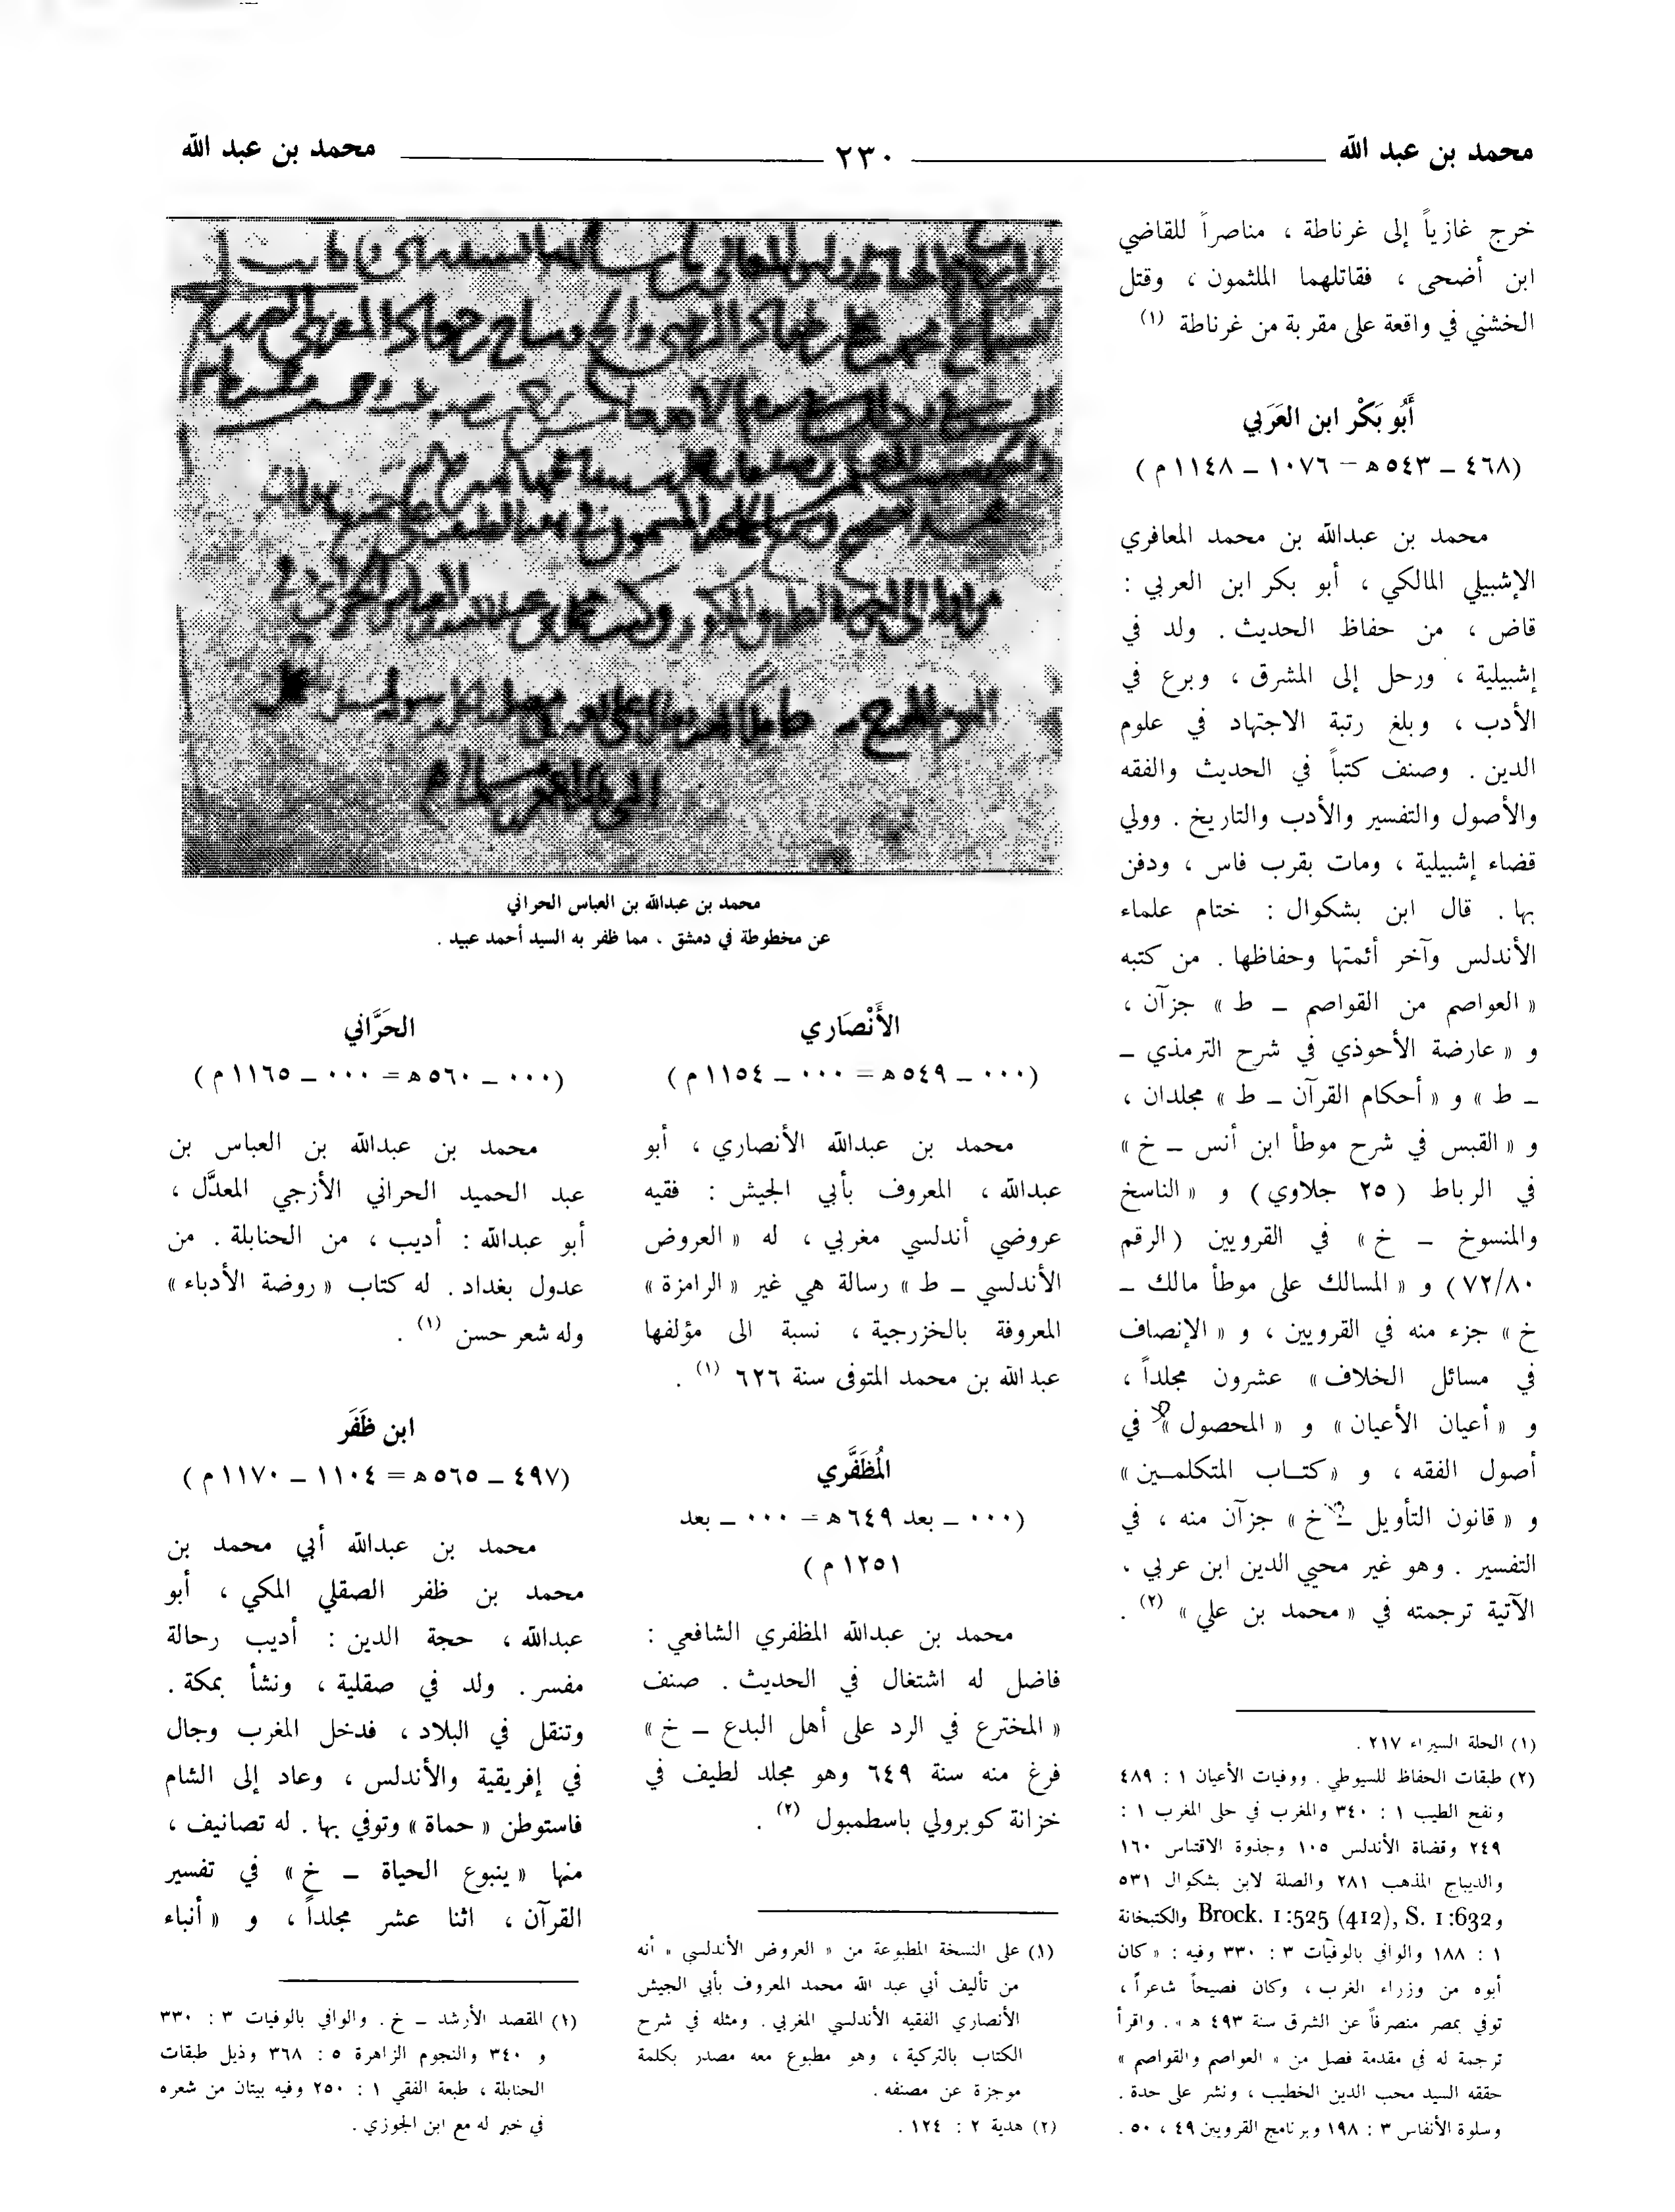 محمد بن عبد الله
٢٣٠
محمد بن عبد الله
خرج غازياً إلى غرناطة ، مناصراً للقاضي
ابن أضحى ، فقاتلهما الملثمون ، وقتل
الخشني في واقعة على مقربة من غرناطة (١)
أَبُو بَكْر ابن العَرَبي
(٤٦٨ – ٥٤٣ ه – ١٠٧٦ – ١١٤٨ م )
محمد بن عبدالله بن محمد المعافري
الإشبيلي المالكي ، أبو بكر ابن العربي :
قاض ، من حفاظ الحديث . ولد في
إشبيلية ، ورحل إلى المشرق ، وبرع في
الأدب ، وبلغ رتبة الاجتهاد في علوم
الدين . وصنف كتباً في الحديث والفقه
والأصول والتفسير والأدب والتاريخ . وولي
قضاء إشبيلية ، ومات بقرب فاس ، ودفن
بها . قال ابن بشكوال : ختام علماء
الأندلس وآخر أئمتها وحفاظها . من كتبه
« العواصم من القواصم – ط » جزآن ،
و « عارضة الأحوذي في شرح الترمذي –
– ط » و « أحكام القرآن – ط » مجلدان ،
و « القبس في شرح موطأ ابن أنس – خ »
في الرباط ( ٢٥ جلاوي ) و « الناسخ
والمنسوخ – خ » في القرويين ( الرقم
٧٢/٨٠ ) و « المسالك على موطأ مالك –
خ » جزء منه في القرويين ، و « الإنصاف
في مسائل الخلاف » عشرون مجلداً ،
و « أعيان الأعيان » و « المحصول » في
أصول الفقه ، و « كتاب المتكلمين »
و « قانون التأويل – خ » جزآن منه ، في
التفسير . وهو غير محيي الدين ابن عربي ،
الآتية ترجمته في « محمد بن علي » (٢) .
(١) الحلة السيراء ٢١٧ .
(٢) طبقات الحفاظ للسيوطي . ووفيات الأعيان ١ : ٤٨٩
ونفح الطيب ١ : ٣٤٠ والمغرب في حلى المغرب ١ :
٢٤٩ وقضاة الأندلس ١٠٥ وجذوة الاقتباس ١٦٠
والديباج المذهب ٢٨١ والصلة لابن بشكوال ٥٣١
و Brock. 1:525 (412), S. 1:632 والكتبخانة
١ : ١٨٨ والوافي بالوفيات ٣ : ٣٣٠ وفيه : « كان
أبوه من وزراء الغرب ، وكان فصيحاً شاعراً ،
توفي بمصر منصرفاً عن الشرق سنة ٤٩٣ ه » . واقرأ
ترجمة له في مقدمة فصل من « العواصم والقواصم »
حققه السيد محب الدين الخطيب ، ونشر على حدة .
وسلوة الأنفاس ٣ : ١٩٨ وبرنامج القرويين ٤٩ ، ٥٠ .
محمد بن عبدالله بن العباس الحراني
عن مخطوطة في دمشق ، مما ظفر به السيد أحمد عبيد .
الأَنْصَاري
(٠٠٠ – ٥٤٩ ه = ٠٠٠ – ١١٥٤ م )
محمد بن عبدالله الأنصاري ، أبو
عبدالله ، المعروف بأبي الجيش : فقيه
عروضي أندلسي مغربي ، له « العروض
الأندلسي – ط » رسالة هي غير « الرامزة »
المعروفة بالخزرجية ، نسبة الى مؤلفها
عبدالله بن محمد المتوفى سنة ٦٢٦ (١) .
المُظَفَّري
(٠٠٠ – بعد ٦٤٩ ه = ٠٠٠ – بعد
١٢٥١ م )
محمد بن عبدالله المظفري الشافعي :
فاضل له اشتغال في الحديث . صنف
« المخترع في الرد على أهل البدع – خ »
فرغ منه سنة ٦٤٩ وهو مجلد لطيف في
خزانة كوبرولي باسطمبول (٢) .
(١) على النسخة المطبوعة من « العروض الأندلسي » أنه
من تأليف أبي عبد الله محمد المعروف بأبي الجيش
الأنصاري الفقيه الأندلسي المغربي . ومثله في شرح
الكتاب بالتركية ، وهو مطبوع معه مصدر بكلمة
موجزة عن مصنفه .
(٢) هدية ٢ : ١٢٤ .
الحَرَّاني
(٠٠٠ – ٥٦٠ ه = ٠٠٠ – ١١٦٥ م )
محمد بن عبدالله بن العباس بن
عبد الحميد الحراني الأزجي المعدَّل ،
أبو عبدالله : أديب ، من الحنابلة . من
عدول بغداد . له كتاب « روضة الأدباء »
وله شعر حسن (١) .
ابن ظَفَر
(٤٩٧ – ٥٦٥ ه = ١١٠٤ – ١١٧٠ م )
محمد بن عبدالله أبي محمد بن
محمد بن ظفر الصقلي المكي ، أبو
عبدالله ، حجة الدين : أديب رحالة
مفسر . ولد في صقلية ، ونشأ بمكة .
وتنقل في البلاد ، فدخل المغرب وجال
في إفريقية والأندلس ، وعاد إلى الشام
فاستوطن « حماة » وتوفي بها . له تصانيف ،
منها « ينبوع الحياة – خ » في تفسير
القرآن ، اثنا عشر مجلداً ، و « أنباء
(١) المقصد الأرشد – خ . والوافي بالوفيات ٣ : ٣٣٠
و ٣٤٠ والنجوم الزاهرة ٥ : ٣٦٨ وذيل طبقات
الحنابلة ، طبعة الفقي ١ : ٢٥٠ وفيه بيتان من شعره
في خبر له مع ابن الجوزي .